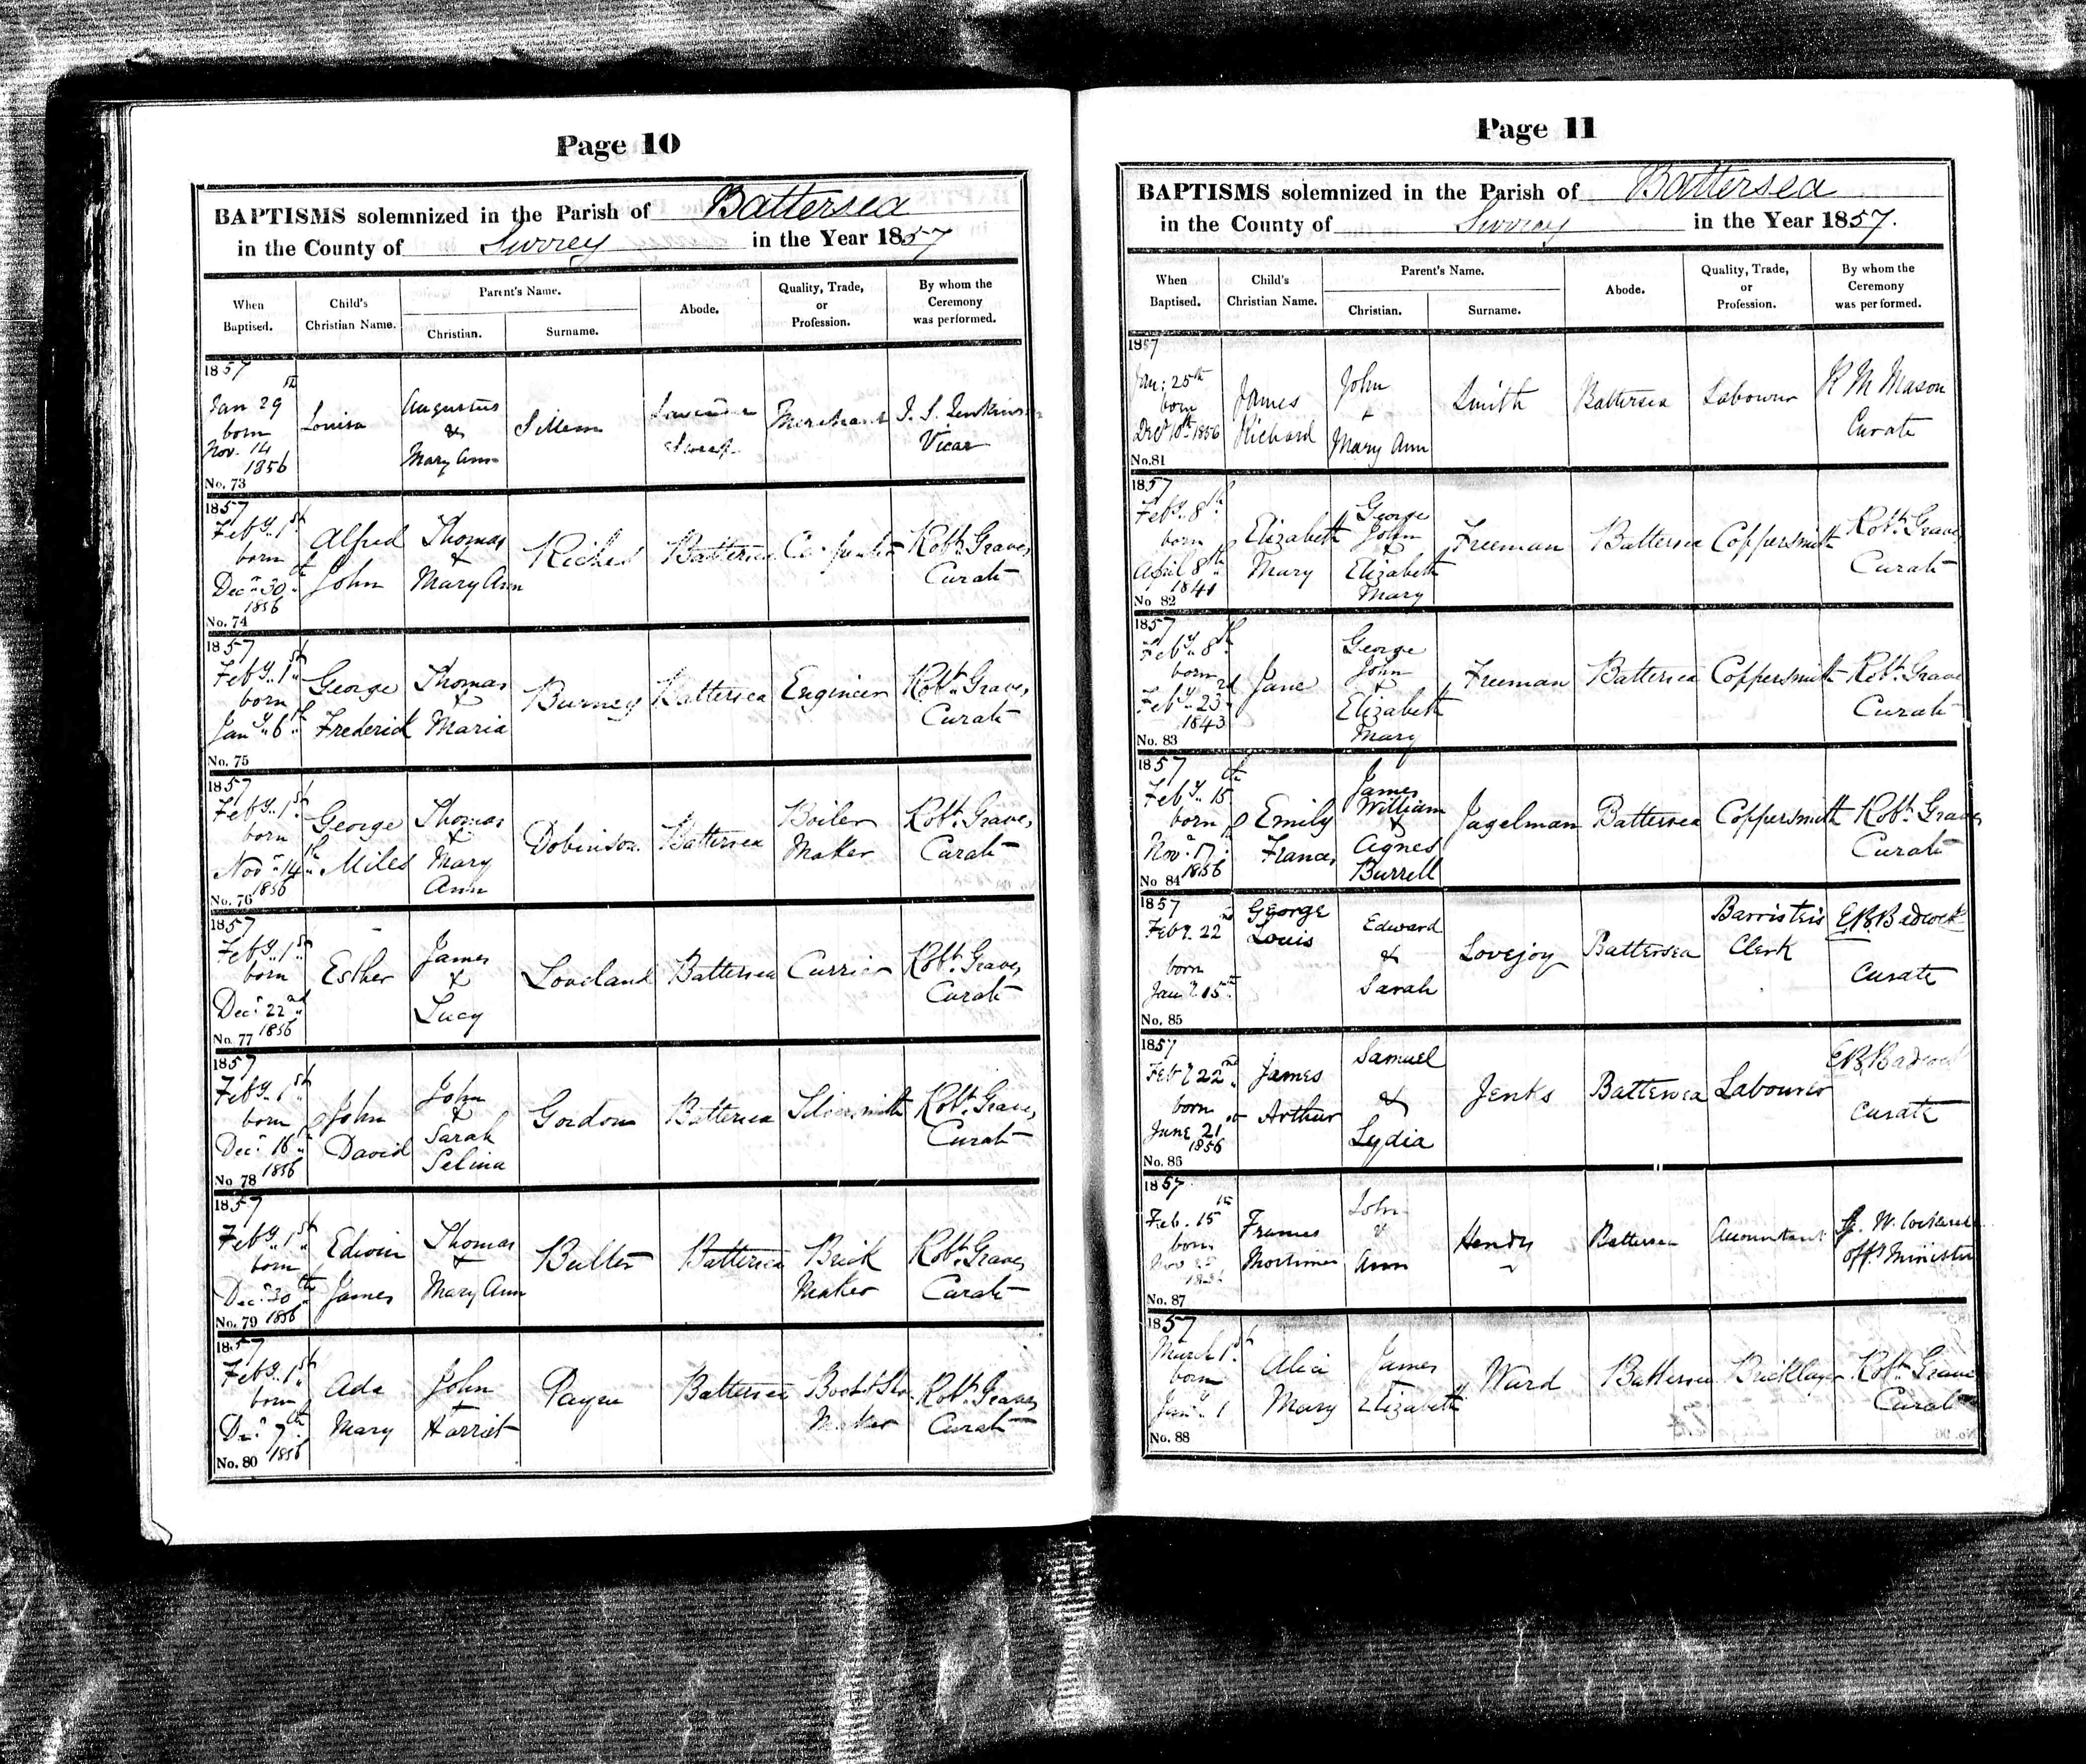 Page 10
BAPTISMS solemnized in the Parish of Battersea
in the County of Surrey in the Year 1857
When Baptised. Child's Christian Name. Parent's Name. Christian. Surname. Abode. Quality, Trade, or Profession. By whom the Ceremony was performed.
1857
Jan 29 born Nov. 14 1856 Louisa Augustus & Mary Ann Sillem Lavender Sweep Merchant J. S. Jenkinson Vicar
No. 73
1857
Feby. 1st born Decr. 30th 1856 Alfred John Thomas & Mary Ann Riches Battersea Carpenter Robt. Graves Curate
No. 74
1857
Feby. 1st born Jany. 6th George Frederick Thomas & Maria Burney Battersea Engineer Robt. Graves Curate
No. 75
1857
Feby. 1st born Novr. 14th 1856 George Miles Thomas & Mary Ann Dobinson Battersea Boiler Maker Robt. Graves Curate
No. 76
1857
Feby. 1st born Decr. 22nd 1856 Esther James & Lucy Loveland Battersea Currier Robt. Graves Curate
No. 77
1857
Feby. 1st born Decr. 16th 1856 John David John & Sarah Selina Gordon Battersea Silversmith Robt. Graves Curate
No 78
1857
Feby. 1st born Decr. 30th 1856 Edwin James Thomas & Mary Ann Butter Battersea Brick Maker Robt. Graves Curate
No. 79
1857
Feby. 1st born Decr. 7th 1856 Ada Mary John & Harriet Payne Battersea Boot & Shoe Maker Robt. Graves Curate
No. 80
Page 11
BAPTISMS solemnized in the Parish of Battersea
in the County of Surrey in the Year 1857.
When Baptised. Child's Christian Name. Parent's Name. Christian. Surname. Abode. Quality, Trade, or Profession. By whom the Ceremony was performed.
1857
Jan: 25th born Decr 10th 1856 James Richard John + Mary Ann Smith Battersea Labourer R M Mason Curate
No.81
1857
Feby. 8th born April 8th 1841 Elizabeth Mary George John & Elizabeth Mary Freeman Battersea Coppersmith Robt. Graves Curate
No 82
1857
Feby. 8th born Feby. 23rd 1843 Jane George John & Elizabeth Mary Freeman Battersea Coppersmith Robt. Graves Curate
No. 83
1857
Feby. 15th born Novr. 17th 1856 Emily Frances James William & Agnes Burrell Jagelman Battersea Coppersmith Robt. Graves Curate
No 84
1857
Feby. 22nd born Jany. 15th George Louis Edward & Sarah Lovejoy Battersea Barristers Clerk E B Badcock Curate
No. 85
1857
Feby 22nd born June 21st 1856 James Arthur Samuel & Lydia Jenks Battersea Labourer E B Badcock Curate
No. 86
1857
Feb. 15th born Nov 1856 Frances Mortimer John & Ann Hendy Battersea Accountant W. offg. Minister
No. 87
1857
March 1st born Jany. 1 Alice Mary James & Elizabeth Ward Battersea Bricklayer Robt. Graves Curate
No. 88